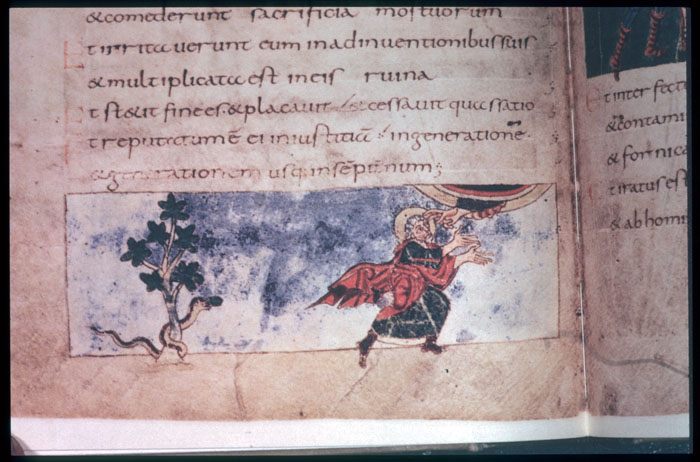 &comederunt sacrificia mortuorum
Et irritauerunt eum in adinuentionibus suis
&multiplicata est in eis ruina
Et st&it finees &placauit &cessauit quassatio
Et reputatum ē ei iniustitiā in generationē
&generationem usq; insempiternum;
Et interfect
&contami
&fornica
Et iratus est
&abhomi